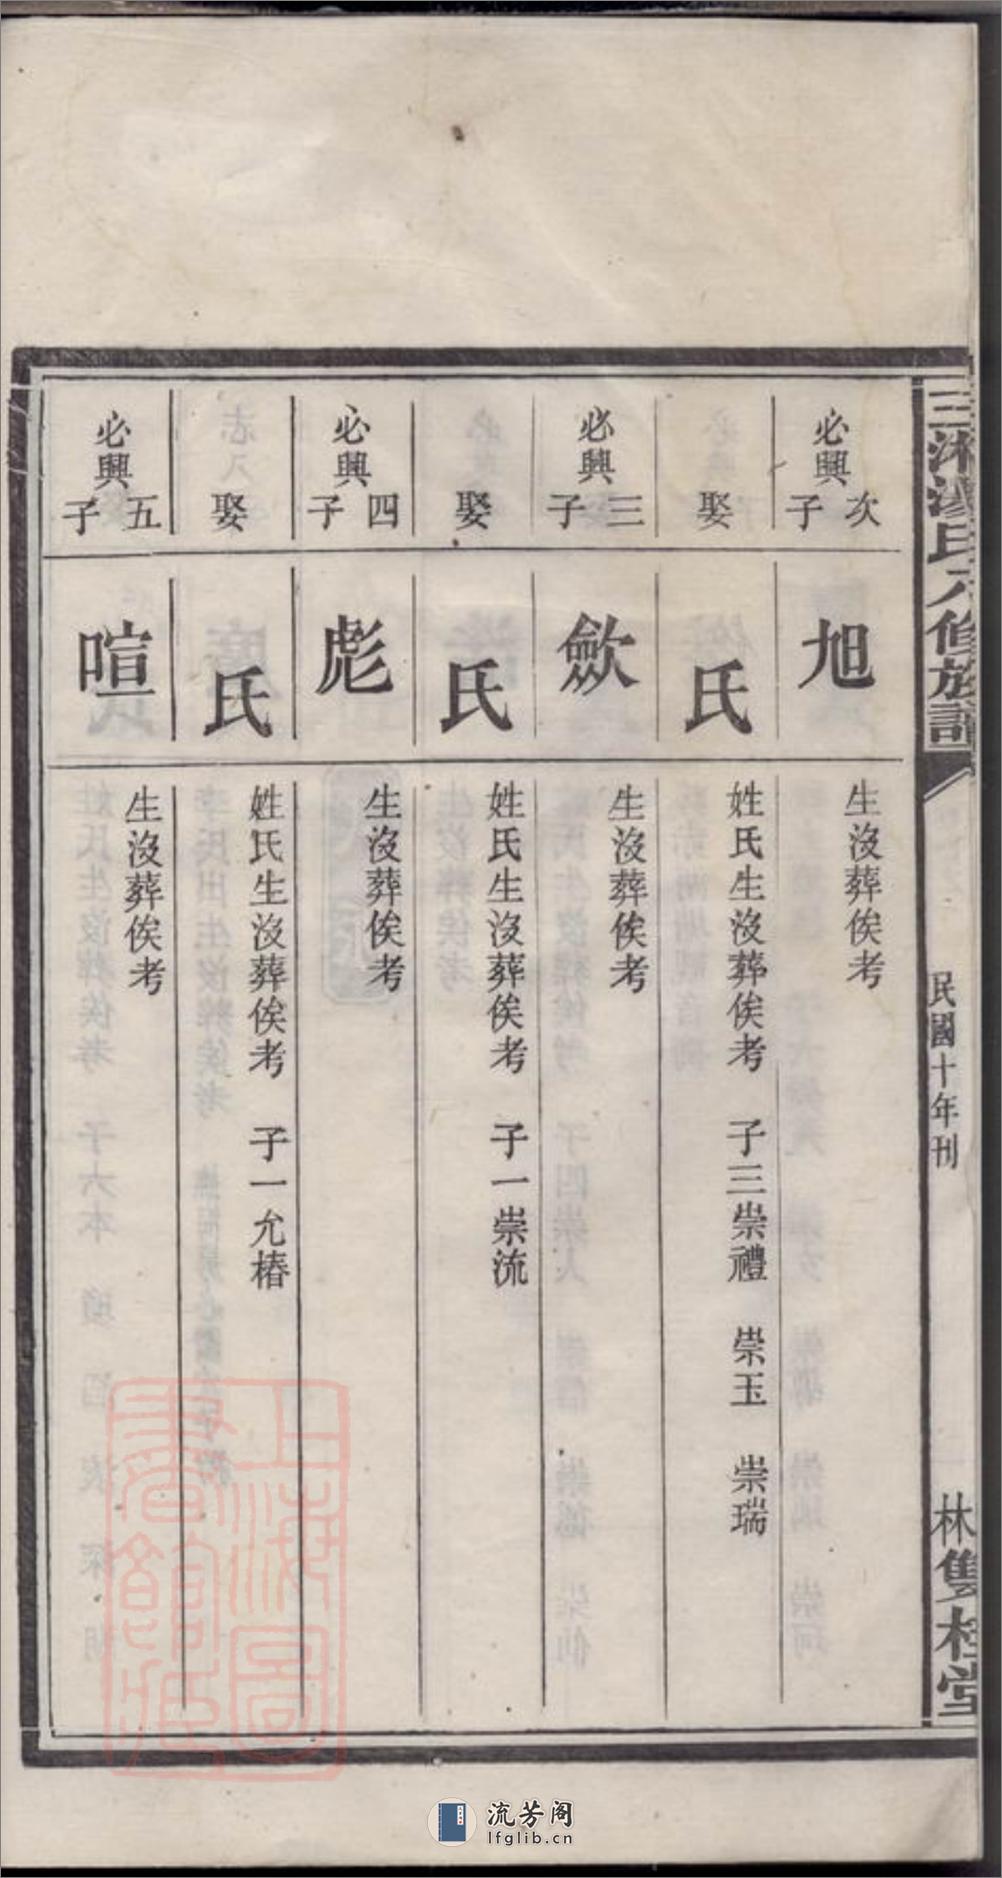 三湘湯氏六修族譜
民國十年刊
林 雙桂堂
必興次子
旭
生沒葬俟考
娶
氏
姓氏生沒葬俟考 子三崇禮 崇玉 崇瑞
必興三子
歛
生沒葬俟考
娶
氏
姓氏生沒葬俟考 子一崇流
必興四子
彪
生沒葬俟考
娶
氏
姓氏生沒葬俟考 子一允椿
必興五子
喧
生沒葬俟考
上海圖書館藏
流芳阁
lfglib.cn